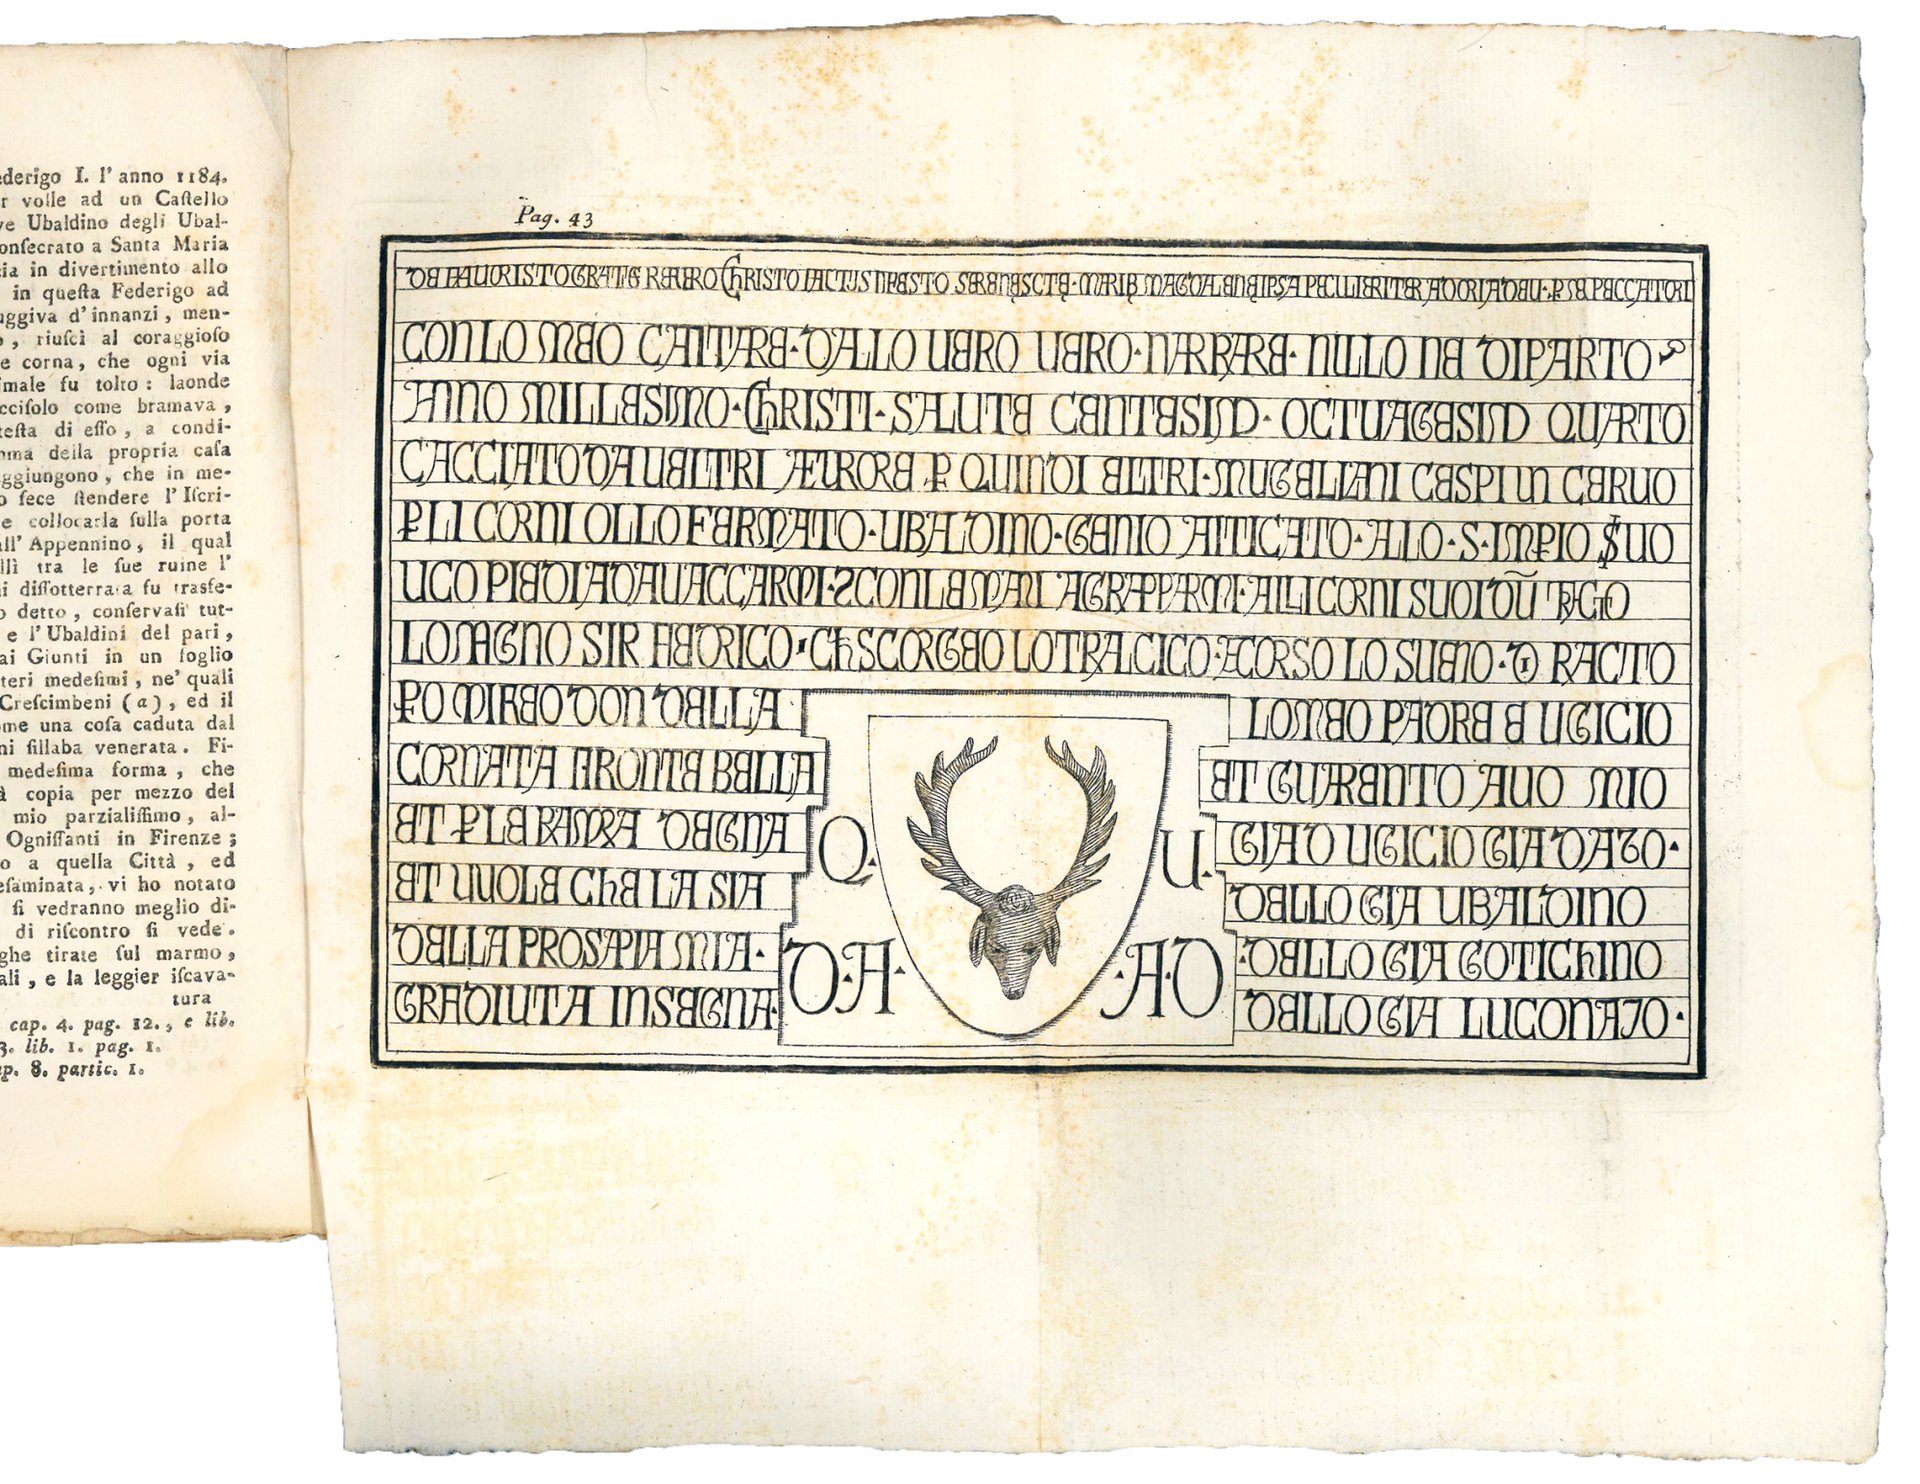 ederigo I. l' anno 1184.
r volle ad un Caſtello
ve Ubaldino degli Ubal-
onſecrato a Santa Maria
cia in divertimento allo
in queſta Federigo ad
uggiva d' innanzi, men-
o, riuſcì al coraggioſo
e corna, che ogni via
imale fu tolto: laonde
cciſolo come bramava,
teſta di eſſo, a condi-
mma della propria caſa
ggiungono, che in me-
o fece ſtendere l' Iſcri-
e collocarla ſulla porta
all' Appennino, il qual
lli tra le ſue ruine l'
ni diſſotterrata fu traſfe-
o detto, conſervaſi tut-
e l' Ubaldini del pari,
ai Giunti in un foglio
tteri medeſimi, ne' quali
Creſcimbeni (a), ed il
ome una coſa caduta dal
ni ſillaba venerata. Fi-
medeſima forma, che
à copia per mezzo del
mio parzialiſſimo, al-
Ogniſſanti in Firenze;
o a quella Città, ed
eſaminata, vi ho notato
ſi vedranno meglio di-
di riſcontro ſi vede.
ghe tirate ſul marmo,
ali, e la leggier iſcava-
tura
cap. 4. pag. 12., e lib.
3. lib. 1. pag. 1.
ap. 8. partic. 1.
Pag. 43
DE FAVORISTO GRATIE REFERO CHRISTO FACTUS PECCATORI
CON LO MEO CANTARE · DALLO VERO VERO · NARRARE · NILLO NE DIPARTO
ANNO MILLESIMO · CHRISTI · SALUTE CENTESIMO · OCTUAGESIMO QUARTO
CACCIATO DA VELTRI A FURORE P QUINDI ELTRI · MUGELLANI CESPI UN CERVO
P LI CORNI OLLO FERMATO · UBALDINO · GENIO ANTICATO · ALLO · S · IMPIO SERVO
UCO PIEDI AD AVACCARMI · CON LE MANI AGRAPPARMI · ALLI CORNI SUOI
LO MAGNO SIR FEDRICO · CHE SCORGEO LO TRALCICO · ACORSO LO SVENO · DI FACTO
PO MI FEO DON DELLA
CORNATA FRONTE BELLA
ET P LE RAMORA DEGNA
ET VUOLE CHE LA SIA
DELLA PROSAPIA MIA ·
GRADIUTA INSEGNA ·
Q · U ·
D · A · · A · D
LO MEO PADRE E UGICIO
ET GUARENTO AVO MIO
GIA D UGICIO GIA DAZO ·
DELLO GIA UBALDINO
· DELLO GIA GOTICHINO
DELLO GIA LUCONAZO ·